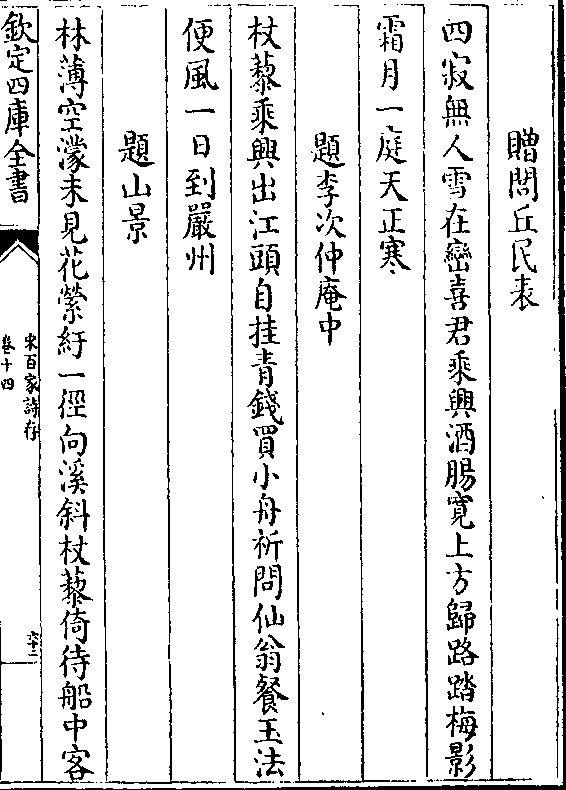 贈閭丘民表
四寂無人雪在巒喜君乘興酒腸寛上方歸路踏梅影
霜月一庭天正寒
題李次仲庵中
杖藜乘興出江頭自挂青錢買小舟祈問仙翁餐玉法
便風一日到嚴州
題山景
林薄空濛未見花縈紆一徑向溪斜杖藜倚待船中客
欽定四庫全書
宋百家詩存
卷十四
六十二